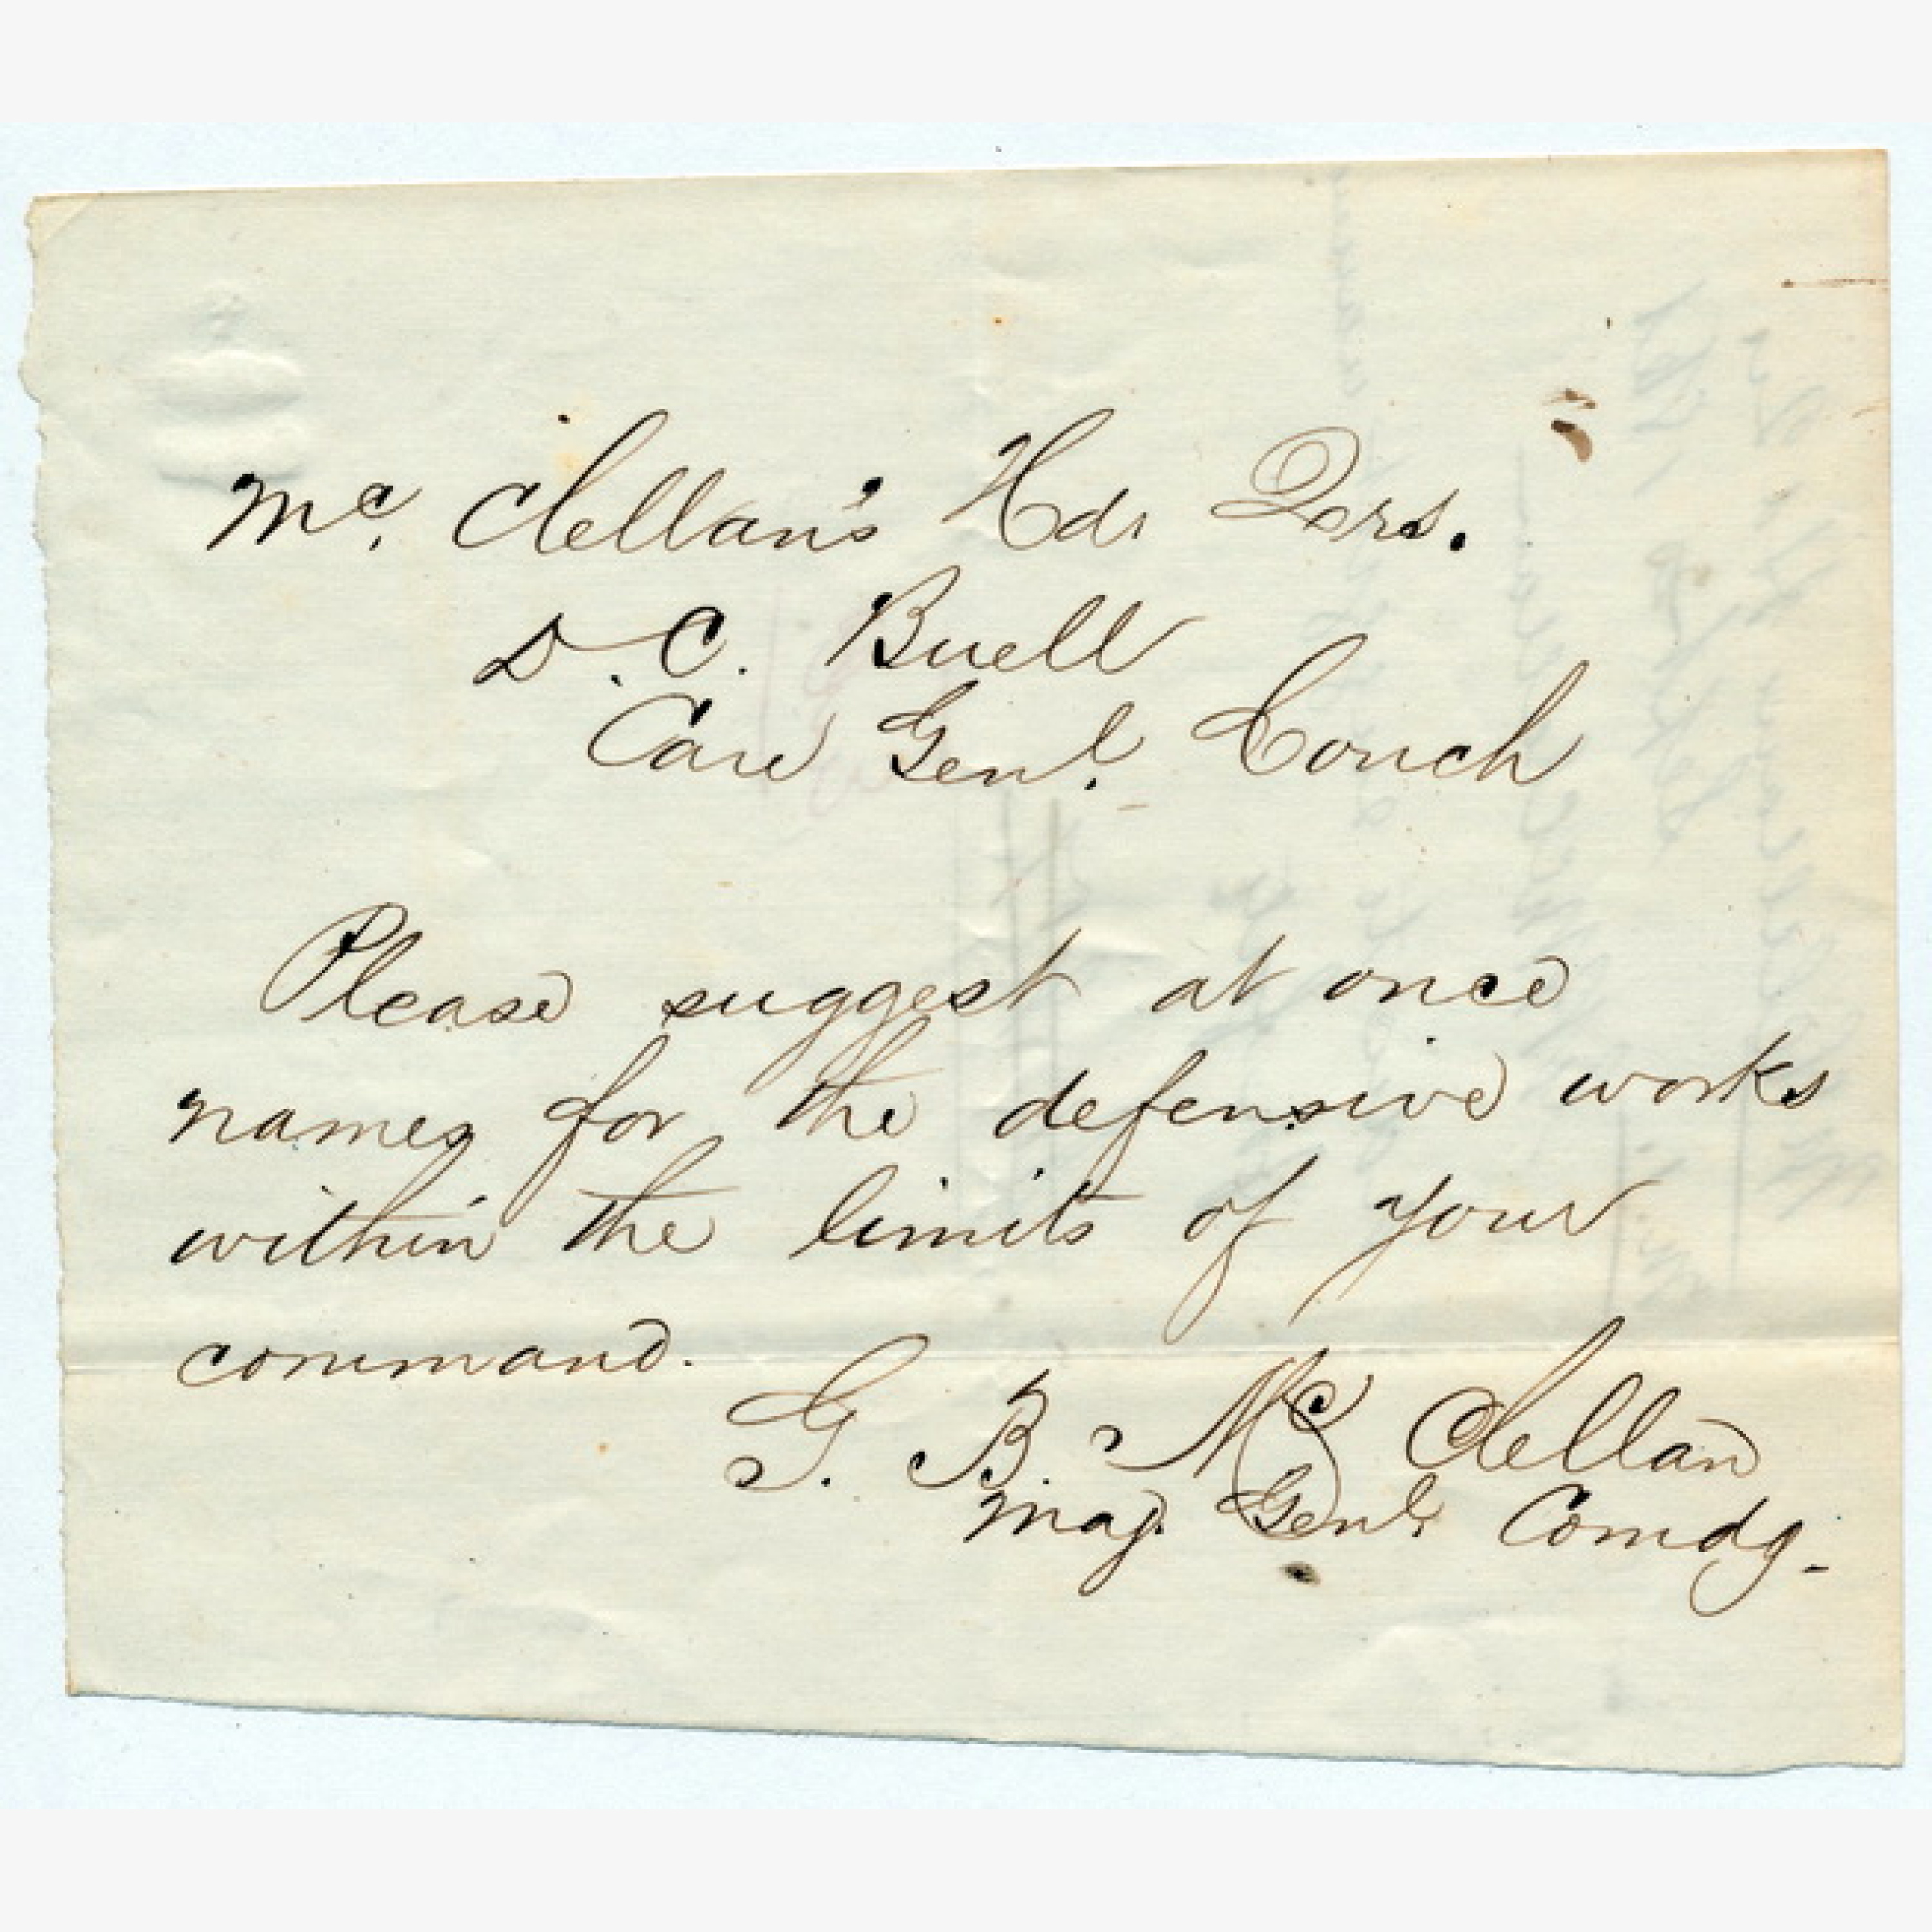 Mc. Clellan's Hd. Qrs.
D. C. Buell
Care Genl. Couch
Please suggest at once
names for the defensive works
within the limits of your
command.
G. B. McClellan
Maj. Genl. Comdg.